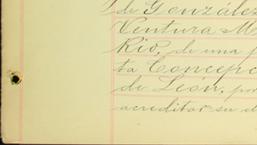 de González
Ventura M
Rio, de una p
ta Concepc
de León, por
acreditar su d